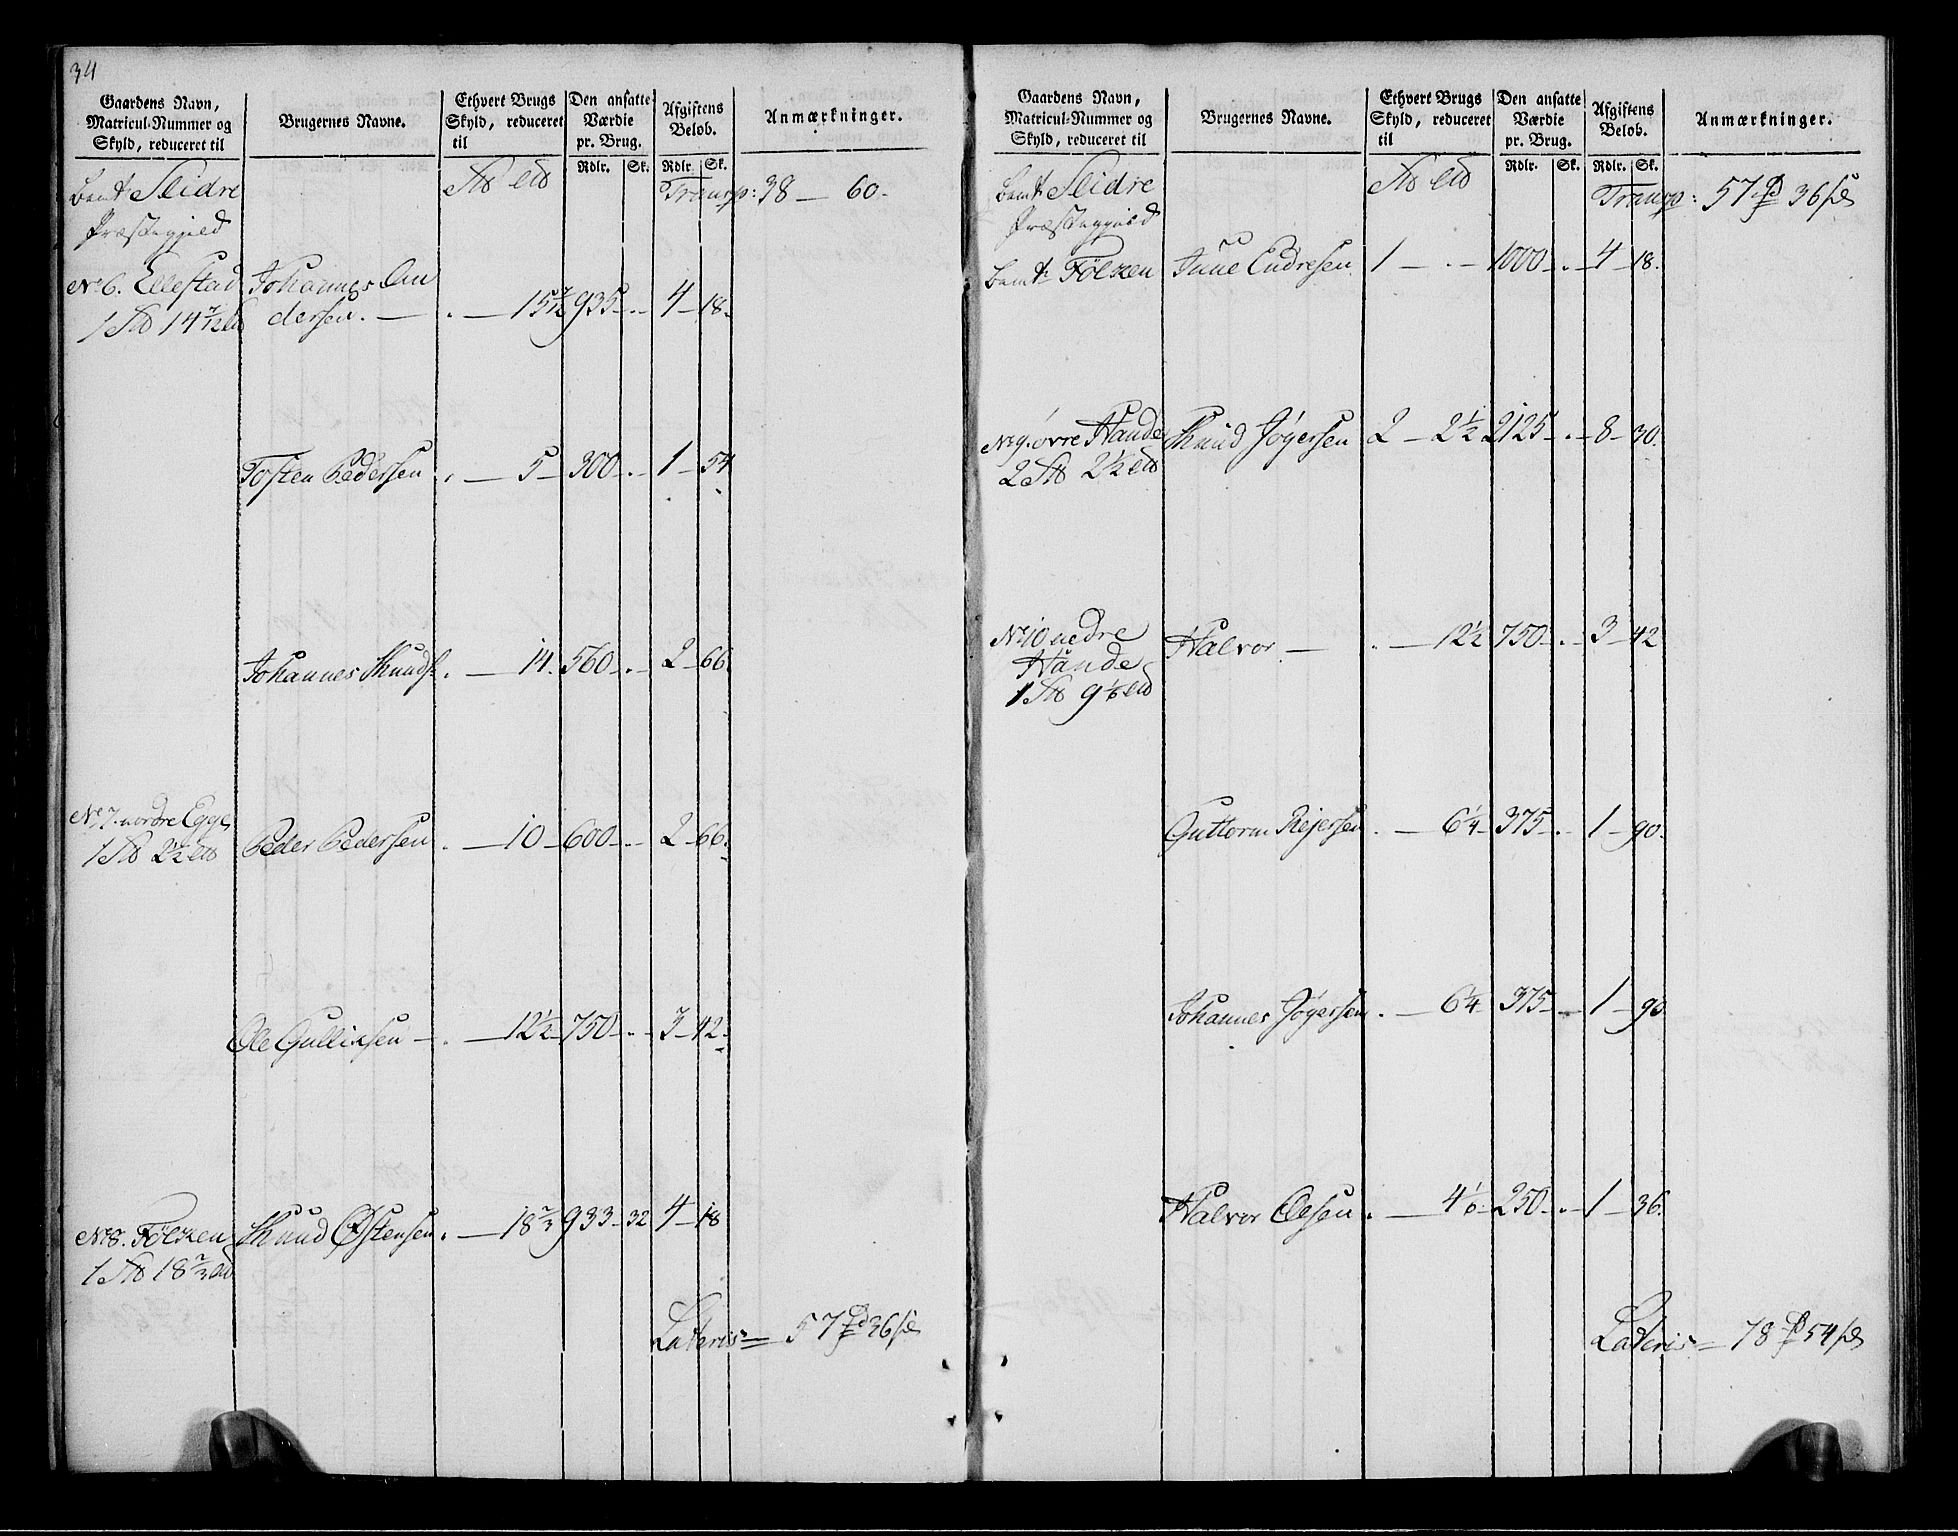 34
Gaardens Navn, Matricul-Nummer og Skyld, reduceret til
Brugernes Navne.
Ethvert Brugs Skyld, reduceret til
Den ansatte Værdie pr. Brug.
Afgiftens Beløb.
Anmærkninger.
Rdlr. Sk. Rdlr. Sk.
Bemt Slidre
Transp: 38 — 60.
Præstegjeld
No 6. Ellestad Johannes An
1 14 7/12 dersen. — . — 15 7/12 935 — . — 4 — 18.
Tosten Pedersen . — 5 — 300 — . — 1 — 54
Johannes Knuds. . — 14. 560 — . — 2 — 66.
No 7. nordre Egge
1 2 1/2 Peder Pedersen . — 10 — 600 — . — 2 — 66.
Ole Gulliksen — . — 12 1/2 750 — . — 3 — 42.
No 8. Følken Knud Østensen . — 18 2/3 933 — 32 4 — 18
1 18 2/3
Lateris = 57 36
Gaardens Navn, Matricul-Nummer og Skyld, reduceret til
Brugernes Navne.
Ethvert Brugs Skyld, reduceret til
Den ansatte Værdie pr. Brug.
Afgiftens Beløb.
Anmærkninger.
Rdlr. Sk. Rdlr. Sk.
Bemt Slidre
Transp: 57 36
Præstegjeld
Bemt Følken Endresen 1 — . — 1000 — . — 4 — 18.
No 9. øvre Hande Knud Jøgersen 2 — 2 1/2 2125 — . — 8 — 30.
2 2 1/2
No 10 nedre Halvor — . — 12 1/2 750 — . — 3 — 42
Hande
1 9 1/6
Guttorm Rejersen . — 6 1/4 — 375 — . — 1 — 90.
Johannes Jøgersen . — 6 1/4 375 — . — 1 — 90
Halvor Olesen . — 4 1/6 250 — . — 1 — 36.
Lateris = 78 54